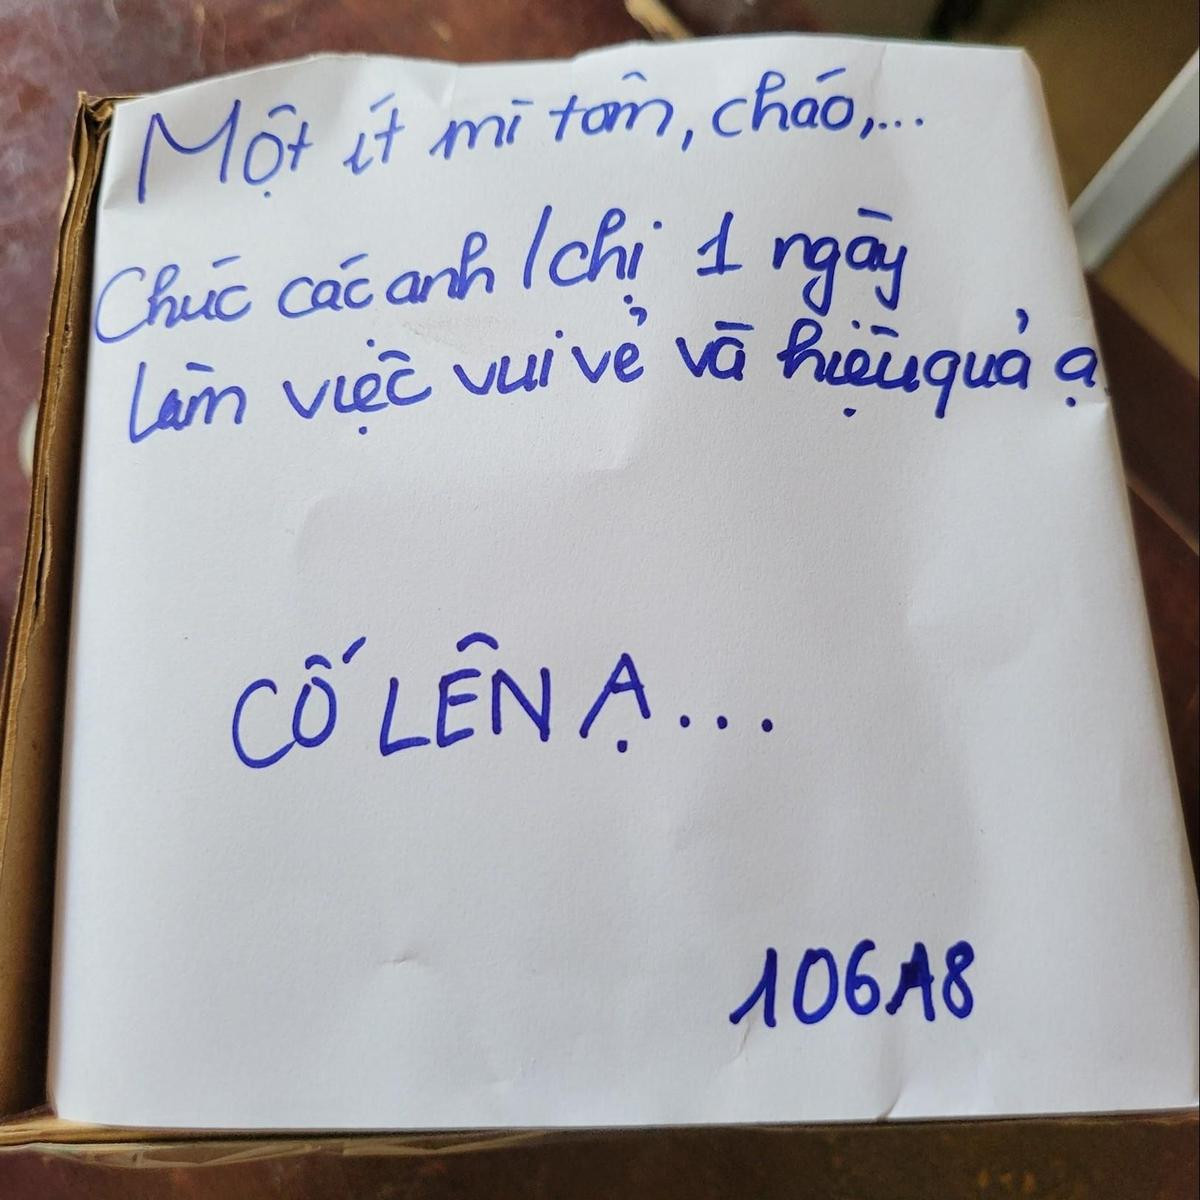 Một ít mì tôm, cháo,...
Chúc các anh/chị 1 ngày
làm việc vui vẻ và hiệu quả ạ
CỐ LÊN Ạ...
106A8